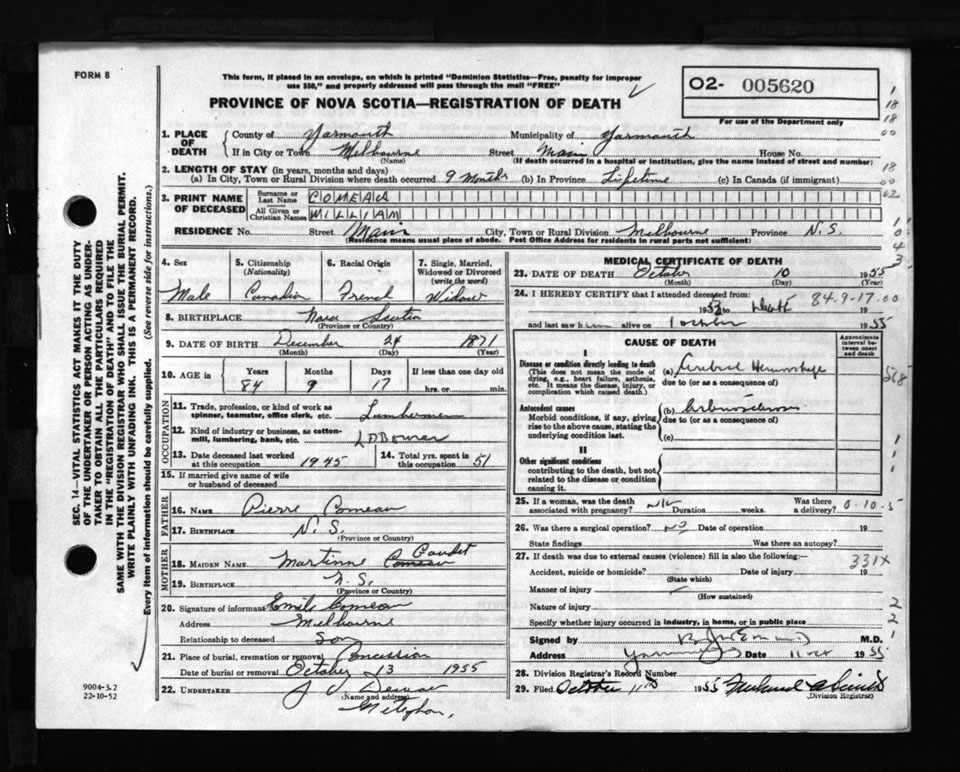 FORM 8
This form, if placed in an envelope, on which is printed "Dominion Statistics—Free, penalty for improper
use $50," and properly addressed will pass through the mail "FREE"
PROVINCE OF NOVA SCOTIA—REGISTRATION OF DEATH
O2- 005620
For use of the Department only
1. PLACE OF DEATH
County of Yarmouth Municipality of Yarmouth
If in City or Town Melbourne Street Main House No.
(Name) (If death occurred in a hospital or institution, give the name instead of street and number)
2. LENGTH OF STAY (in years, months and days)
(a) In City, Town or Rural Division where death occurred 9 Months (b) In Province Lifetime (c) In Canada (if immigrant)
3. PRINT NAME OF DECEASED
Surname or Last Name COMEAU
All Given or Christian Names WILLIAM
RESIDENCE No. Street Main City, Town or Rural Division Melbourne Province N.S.
(Residence means usual place of abode. Post Office Address for residents in rural parts not sufficient)
4. Sex
Male
5. Citizenship
(Nationality)
Canadian
6. Racial Origin
French
7. Single, Married,
Widowed or Divorced
(write the word)
Widow
8. BIRTHPLACE Nova Scotia
(Province or Country)
9. DATE OF BIRTH December 24 1871
(Month) (Day) (Year)
10. AGE in
Years Months Days If less than one day old
84 9 17 hrs. or min.
OCCUPATION
11. Trade, profession, or kind of work as
spinner, teamster, office clerk, etc.
12. Kind of industry or business, as cotton-
mill, lumbering, bank, etc.
13. Date deceased last worked
at this occupation 1945
14. Total yrs. spent in
this occupation 51
15. If married give name of wife
or husband of deceased
FATHER
16. Name Pierre Comeau
17. Birthplace N.S.
(Province or Country)
MOTHER
18. Maiden Name Martinne Comeau Gaudet
19. Birthplace N.S.
(Province or Country)
20. Signature of informant Emile Comeau
Address Melbourne
Relationship to deceased Son
21. Place of burial, cremation or removal Concession
Date of burial or removal October 13 1955
22. Undertaker
(Name and address)
Meteghan,
MEDICAL CERTIFICATE OF DEATH
23. DATE OF DEATH October 10 1955
(Month) (Day) (Year)
24. I HEREBY CERTIFY that I attended deceased from:
1953 to death 19
84-9-17.00
and last saw him alive on 1 October 1955
CAUSE OF DEATH
Approximate
interval be-
tween onset
and death
I
Disease or condition directly leading to death
(This does not mean the mode of
dying, e.g., heart failure, asthenia,
etc. It means the disease, injury, or
complication which caused death.)
(a) Cerebral Hemorrhage
due to (or as a consequence of)
Antecedent causes
Morbid conditions, if any, giving
rise to the above cause, stating the
underlying condition last.
(b)
due to (or as a consequence of)
(c)
II
Other significant conditions
contributing to the death, but not
related to the disease or condition
causing it.
25. If a woman, was the death
associated with pregnancy? Duration weeks.
Was there
a delivery?
0-10-5
26. Was there a surgical operation? No Date of operation 19
State findings Was there an autopsy?
27. If death was due to external causes (violence) fill in also the following:—
331X
Accident, suicide or homicide? Date of injury 19
(State which)
Manner of injury
(How sustained)
Nature of injury
Specify whether injury occurred in industry, in home, or in public place
Signed by M.D.
Address Yarmouth Date 11 Oct 1955
28. Division Registrar's Record Number
29. Filed October 11th 1955
(Division Registrar)
SEC. 14—VITAL STATISTICS ACT MAKES IT THE DUTY
OF THE UNDERTAKER OR PERSON ACTING AS UNDER-
TAKER TO OBTAIN ALL THE PARTICULARS REQUIRED
IN THE "REGISTRATION OF DEATH" AND TO FILE THE
SAME WITH THE DIVISION REGISTRAR WHO SHALL ISSUE THE BURIAL PERMIT.
WRITE PLAINLY WITH UNFADING INK. THIS IS A PERMANENT RECORD.
Every item of information should be carefully supplied. (See reverse side for instructions.)
9004-3.2
22-10-52